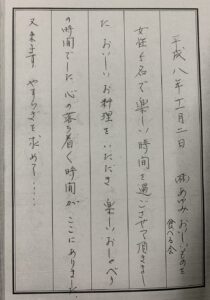 平成八年十一月二日 ㈱あゆみ おいしいものを
食べる会
女性六名で楽しい時間を過ごさせて頂きまし
た おいしいお料理をいただき 楽しいおしゃべり
の時間でした 心の落ち着く時間が ここにありました
又来ます やすらぎを求めて・・・・